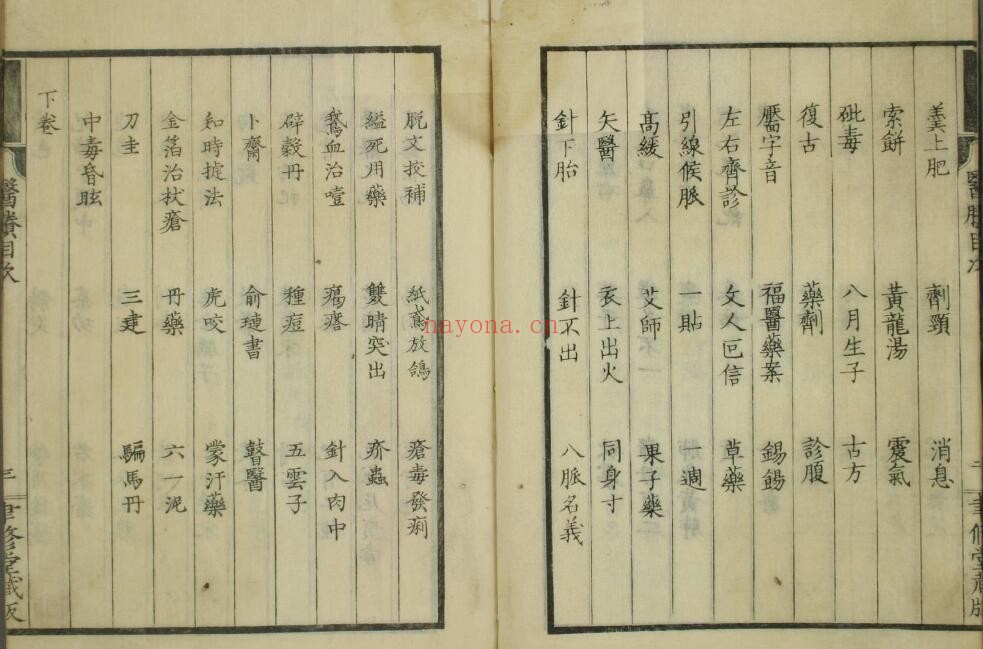 羹上肥 劑頸 消息
索餅 黃龍湯 靉氣
砒毒 八月生子 古方
復古 藥劑 診腹
醫字音 福醫藥案 錫餳
左右齊診 文人叵信 草藥
引線候脈 一貼 一週
高緩 艾師 果子藥
矢醫 衣上出火 同身寸
針下胎 針不出 八脈名義
脫文挍補 紙鳶放鴿 瘡毒發痢
縊死用藥 雙睛突出 疥蟲
鵞血治噎 瘍瘩 針入肉中
辟穀丹 種痘 五雲子
卜齋 俞璉書 瞽醫
知時捷法 虎咬 蒙汗藥
金箔治杖瘡 丹藥 六一泥
刀圭 三建 騙馬丹
中毒昏眩
下卷
醫賸目次
聿修堂藏版
nayona.cn